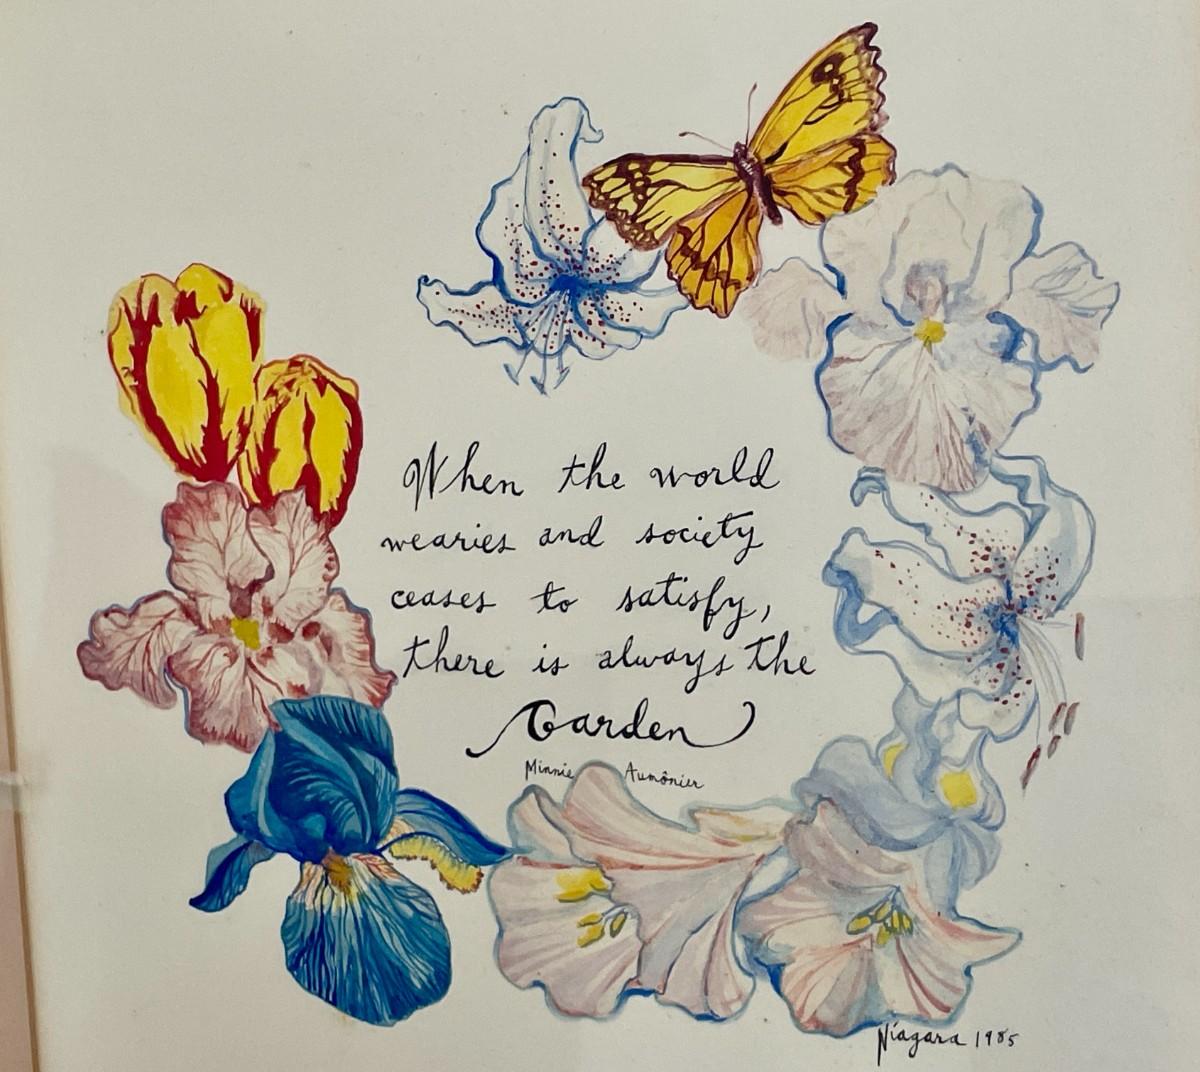 When the world
wearies and society
ceases to satisfy,
there is always the
Garden
Minnie Aumônier
Niagara 1985